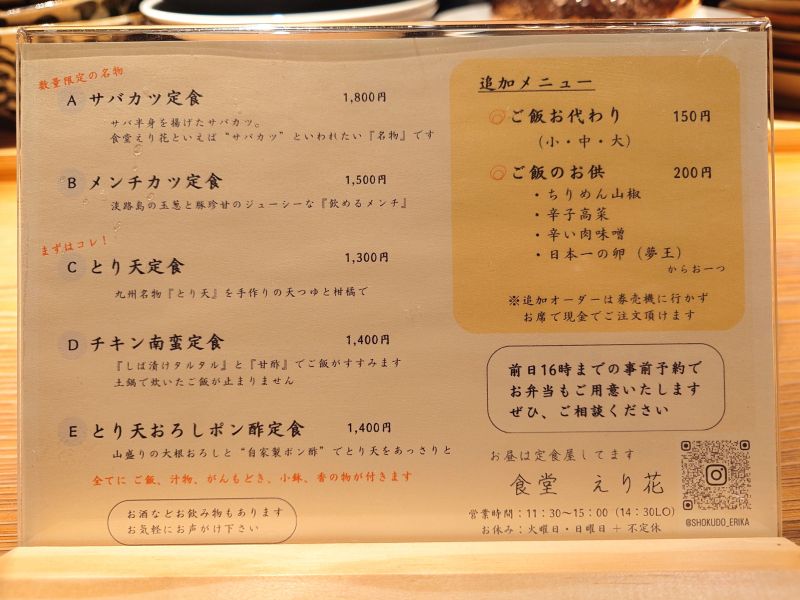 数量限定の名物
A サバカツ定食 1,800円
サバ半身を揚げたサバカツ。
食堂えり花といえば“サバカツ”といわれたい『名物』です
B メンチカツ定食 1,500円
淡路島の玉葱と豚珍甘のジューシーな『飲めるメンチ』
まずはコレ！
C とり天定食 1,300円
九州名物『とり天』を手作りの天つゆと柑橘で
D チキン南蛮定食 1,400円
『しば漬けタルタル』と『甘酢』でご飯がすすみます
土鍋で炊いたご飯が止まりません
E とり天おろしポン酢定食 1,400円
山盛りの大根おろしと“自家製ポン酢”でとり天をあっさりと
全てに ご飯、汁物、がんもどき、小鉢、香の物が付きます
お酒などお飲み物もあります
お気軽にお声がけ下さい
追加メニュー
◎ご飯お代わり 150円
（小・中・大）
◎ご飯のお供 200円
・ちりめん山椒
・辛子高菜
・辛い肉味噌
・日本一の卵（夢王）
からお一つ
※追加オーダーは券売機に行かず
お席で現金でご注文頂けます
前日16時までの事前予約で
お弁当もご用意いたします
ぜひ、ご相談ください
お昼は定食屋してます
食堂 えり花
営業時間：11：30〜15：00（14：30LO）
お休み：火曜日・日曜日＋不定休
@SHOKUDO_ERIKA